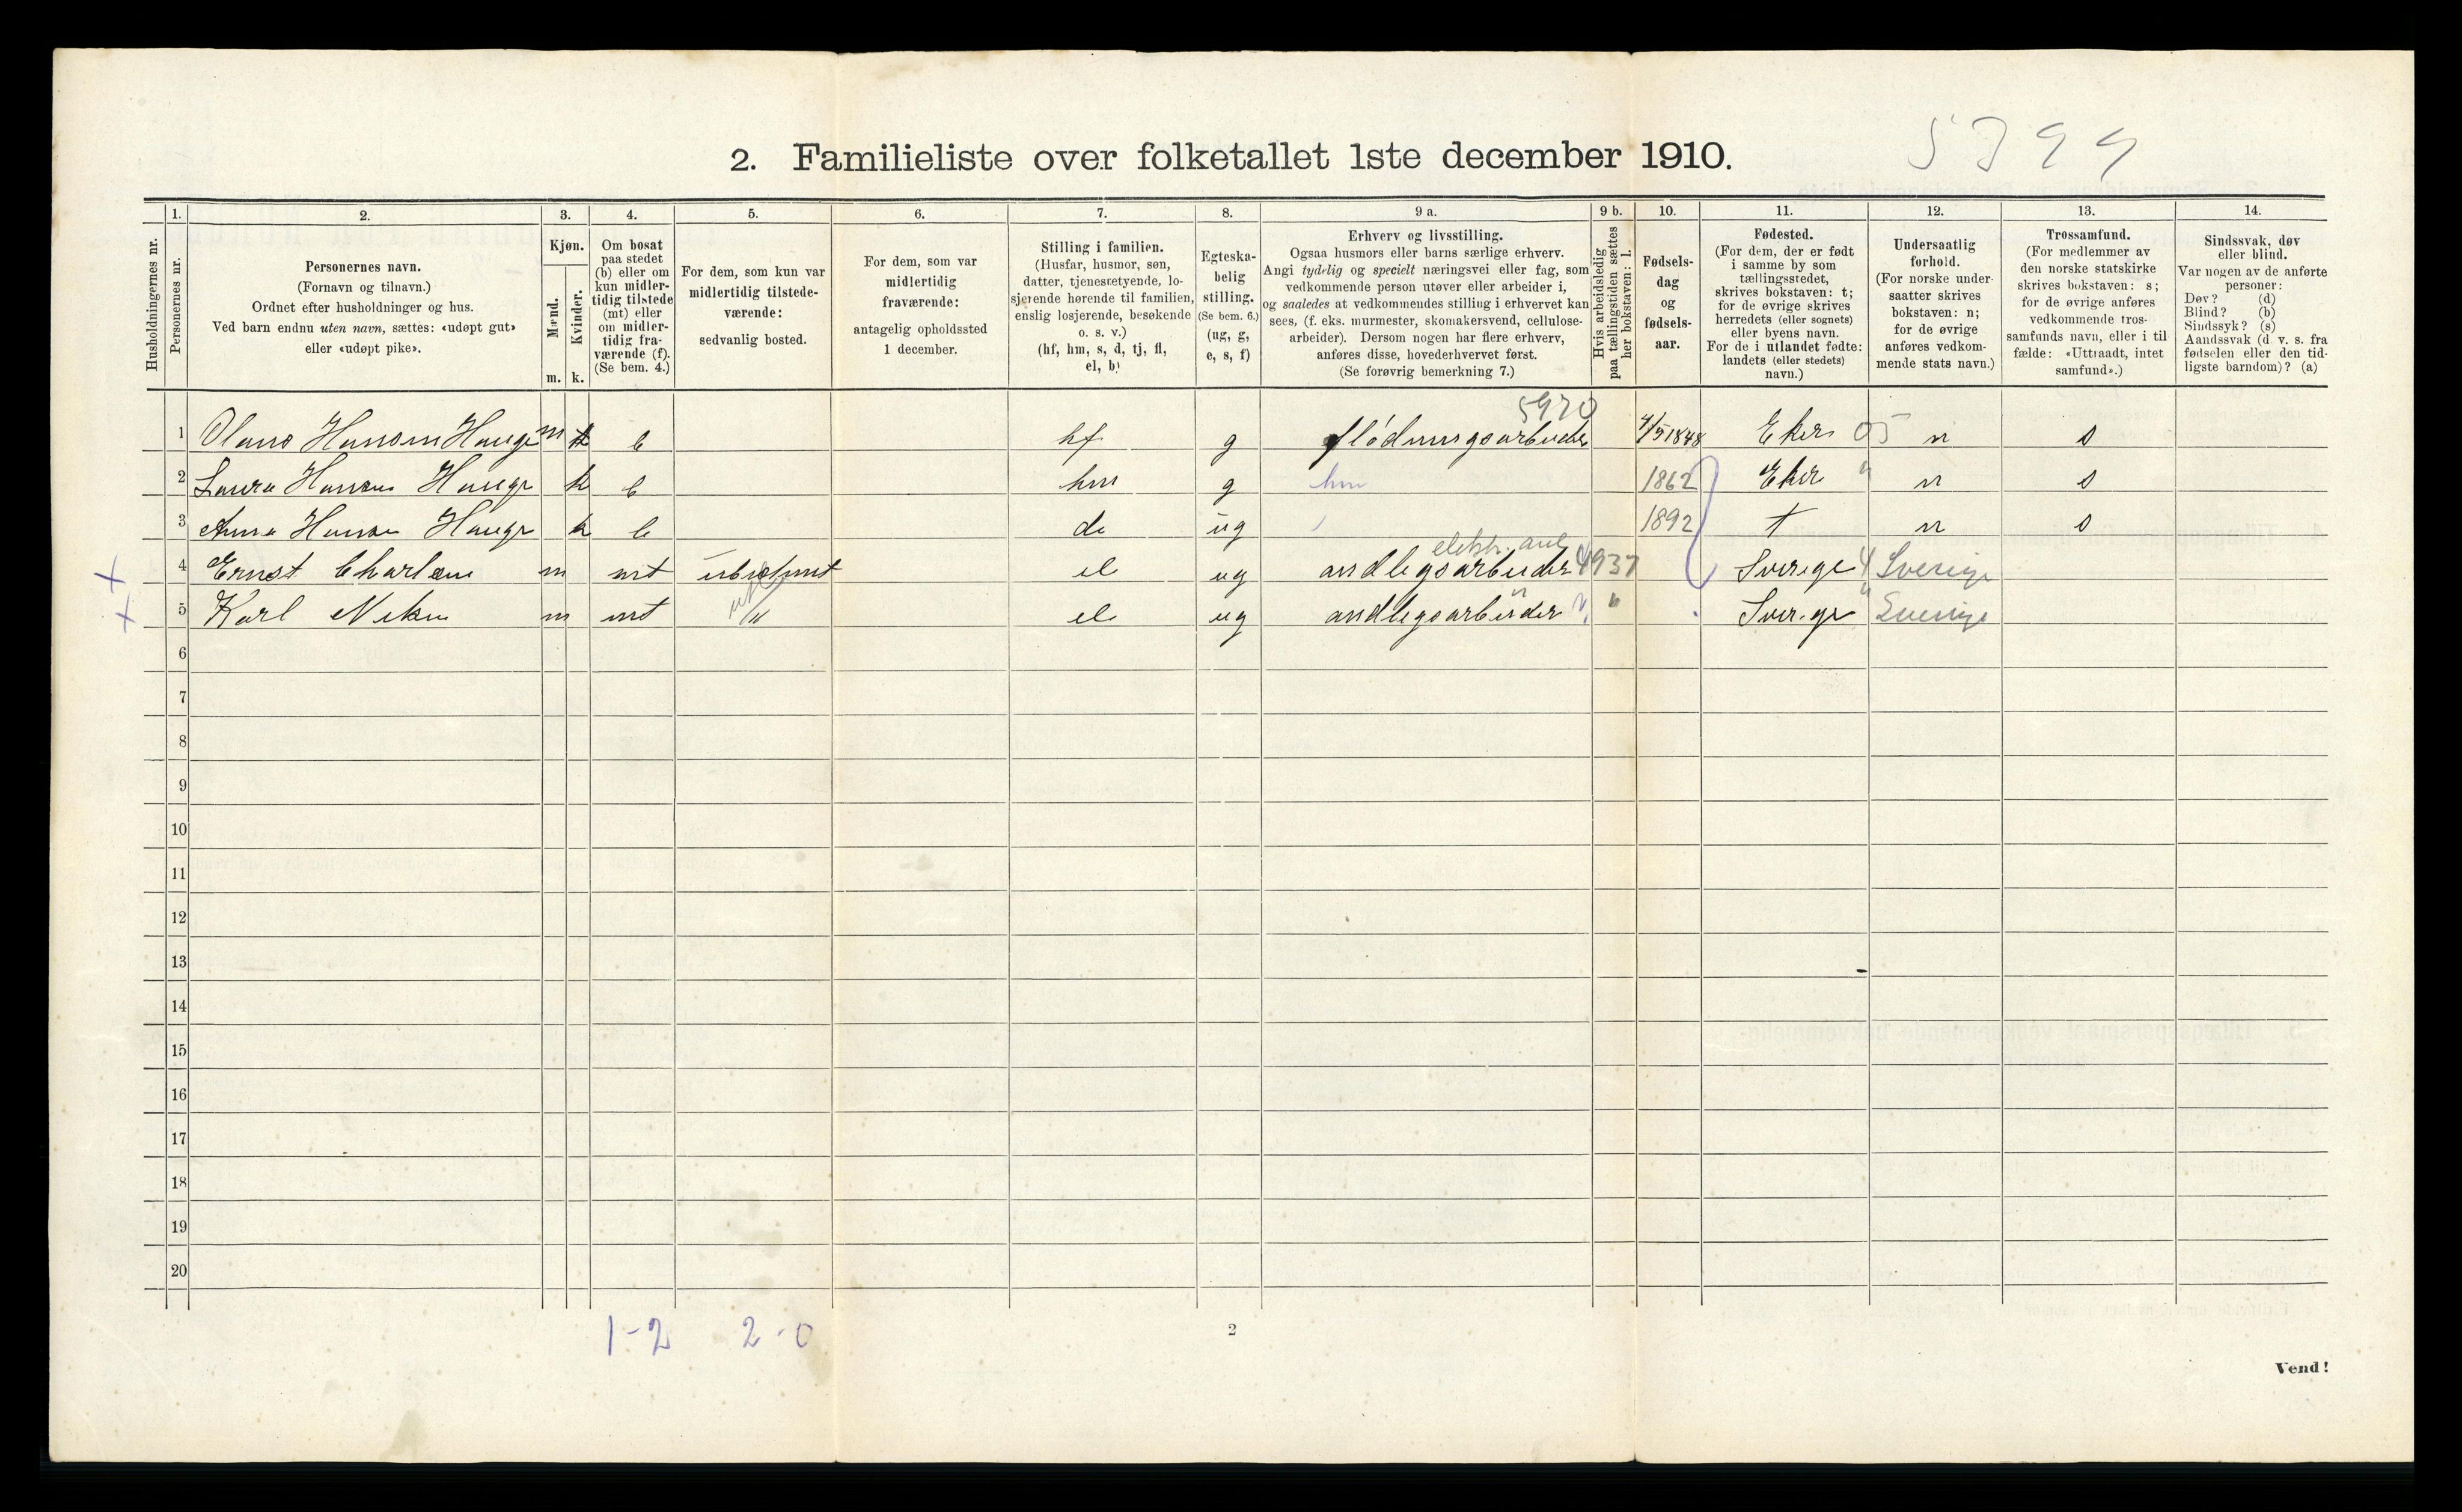 5399
2. Familieliste over folketallet 1ste december 1910.
Husholdningernes nr.
1.
Personernes nr.
2.
Personernes navn.
(Fornavn og tilnavn.)
Ordnet efter husholdninger og hus.
Ved barn endnu uten navn, sættes: «udøpt gut»
eller «udøpt pike».
3.
Kjøn.
Mænd.
Kvinder.
m. k.
4.
Om bosat
paa stedet
(b) eller om
kun midler-
tidig tilstede
(mt) eller
om midler-
tidig fra-
værende (f).
(Se bem. 4.)
5.
For dem, som kun var
midlertidig tilstede-
værende:
sedvanlig bosted.
6.
For dem, som var
midlertidig
fraværende:
antagelig opholdssted
1 december.
7.
Stilling i familien.
(Husfar, husmor, søn,
datter, tjenestetyende, lo-
sjerende hørende til familien,
enslig losjerende, besøkende
o. s. v.)
(hf, hm, s, d, tj, fl,
el, b)
8.
Egteska-
belig
stilling.
(Se bem. 6.)
(ug, g,
e, s, f)
9 a.
Erhverv og livsstilling.
Ogsaa husmors eller barns særlige erhverv.
Angi tydelig og specielt næringsvei eller fag, som
vedkommende person utøver eller arbeider i,
og saaledes at vedkommendes stilling i erhvervet kan
sees, (f. eks. murmester, skomakersvend, cellulose-
arbeider). Dersom nogen har flere erhverv,
anføres disse, hovederhvervet først.
(Se forøvrig bemerkning 7.)
9 b.
Hvis arbeidsledig
paa tællingstiden sættes
her bokstaven: l.
10.
Fødsels-
dag
og
fødsels-
aar.
11.
Fødested.
(For dem, der er født
i samme by som
tællingsstedet,
skrives bokstaven: t;
for de øvrige skrives
herredets (eller sognets)
eller byens navn.
For de i utlandet fødte:
landets (eller stedets)
navn.)
12.
Undersaatlig
forhold.
(For norske under-
saatter skrives
bokstaven: n;
for de øvrige
anføres vedkom-
mende stats navn.)
13.
Trossamfund.
(For medlemmer av
den norske statskirke
skrives bokstaven: s;
for de øvrige anføres
vedkommende tros-
samfunds navn, eller i til
fælde: «Uttraadt, intet
samfund».)
14.
Sindssvak, døv
eller blind.
Var nogen av de anførte
personer:
Døv? (d)
Blind? (b)
Sindssyk? (s)
Aandssvak (d. v. s. fra
fødselen eller den tid-
ligste barndom)? (a)
5920
1 Olaus Hansen Hauge m k b hf g flödningsarbeider 4/5 1848 Eker 05 n s
2 Laura Hansen Hauge k b hm g hm 1862 Eker " n s
3 Anna Hansen Hauge k b de ug 1892 t n s
elektr. anl
4 Ernst Charlsen m mt ubestemt el ug andlegsarbeider 4937 Sverige 4 Sverige
5 Karl m mt " el ug andlegsarbeider " Sverige " Sverige
6
7
8
9
10
11
12
13
14
15
16
17
18
19
20
1-2 2-0
2
Vend!